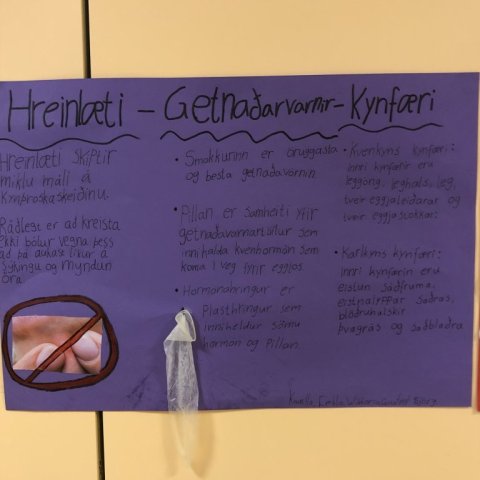 Hreinlæti - Getnaðarvarnir - Kynfæri
Hreinlæti skiptir
miklu máli á
kynþroskaskeiðinu.
Ráðlegt er að kreista
ekki bólur vegna þess
að þá aukast líkur á
sýkingu og myndun
öra.
• Smokkurinn er öruggasta
og besta getnaðarvörnin
• Pillan er samheiti yfir
getnaðarvarnartöflur sem
innihalda kvenhormón sem
koma í veg fyrir egglos.
• Hormónahringur er
Plasthringur sem
inniheldur sömu
hormón og Pillan.
• Kvenkyns kynfæri:
innri kynfærin eru
leggöng, legháls, leg,
tveir eggjaleiðarar og
tveir eggjastokkar.
• Karlkyns kynfæri:
innri kynfærin eru
eistun, sáðrása,
eistnalyppur, sáðrás,
blöðruhálskir
þvagrás og sáðblaðra
Embla